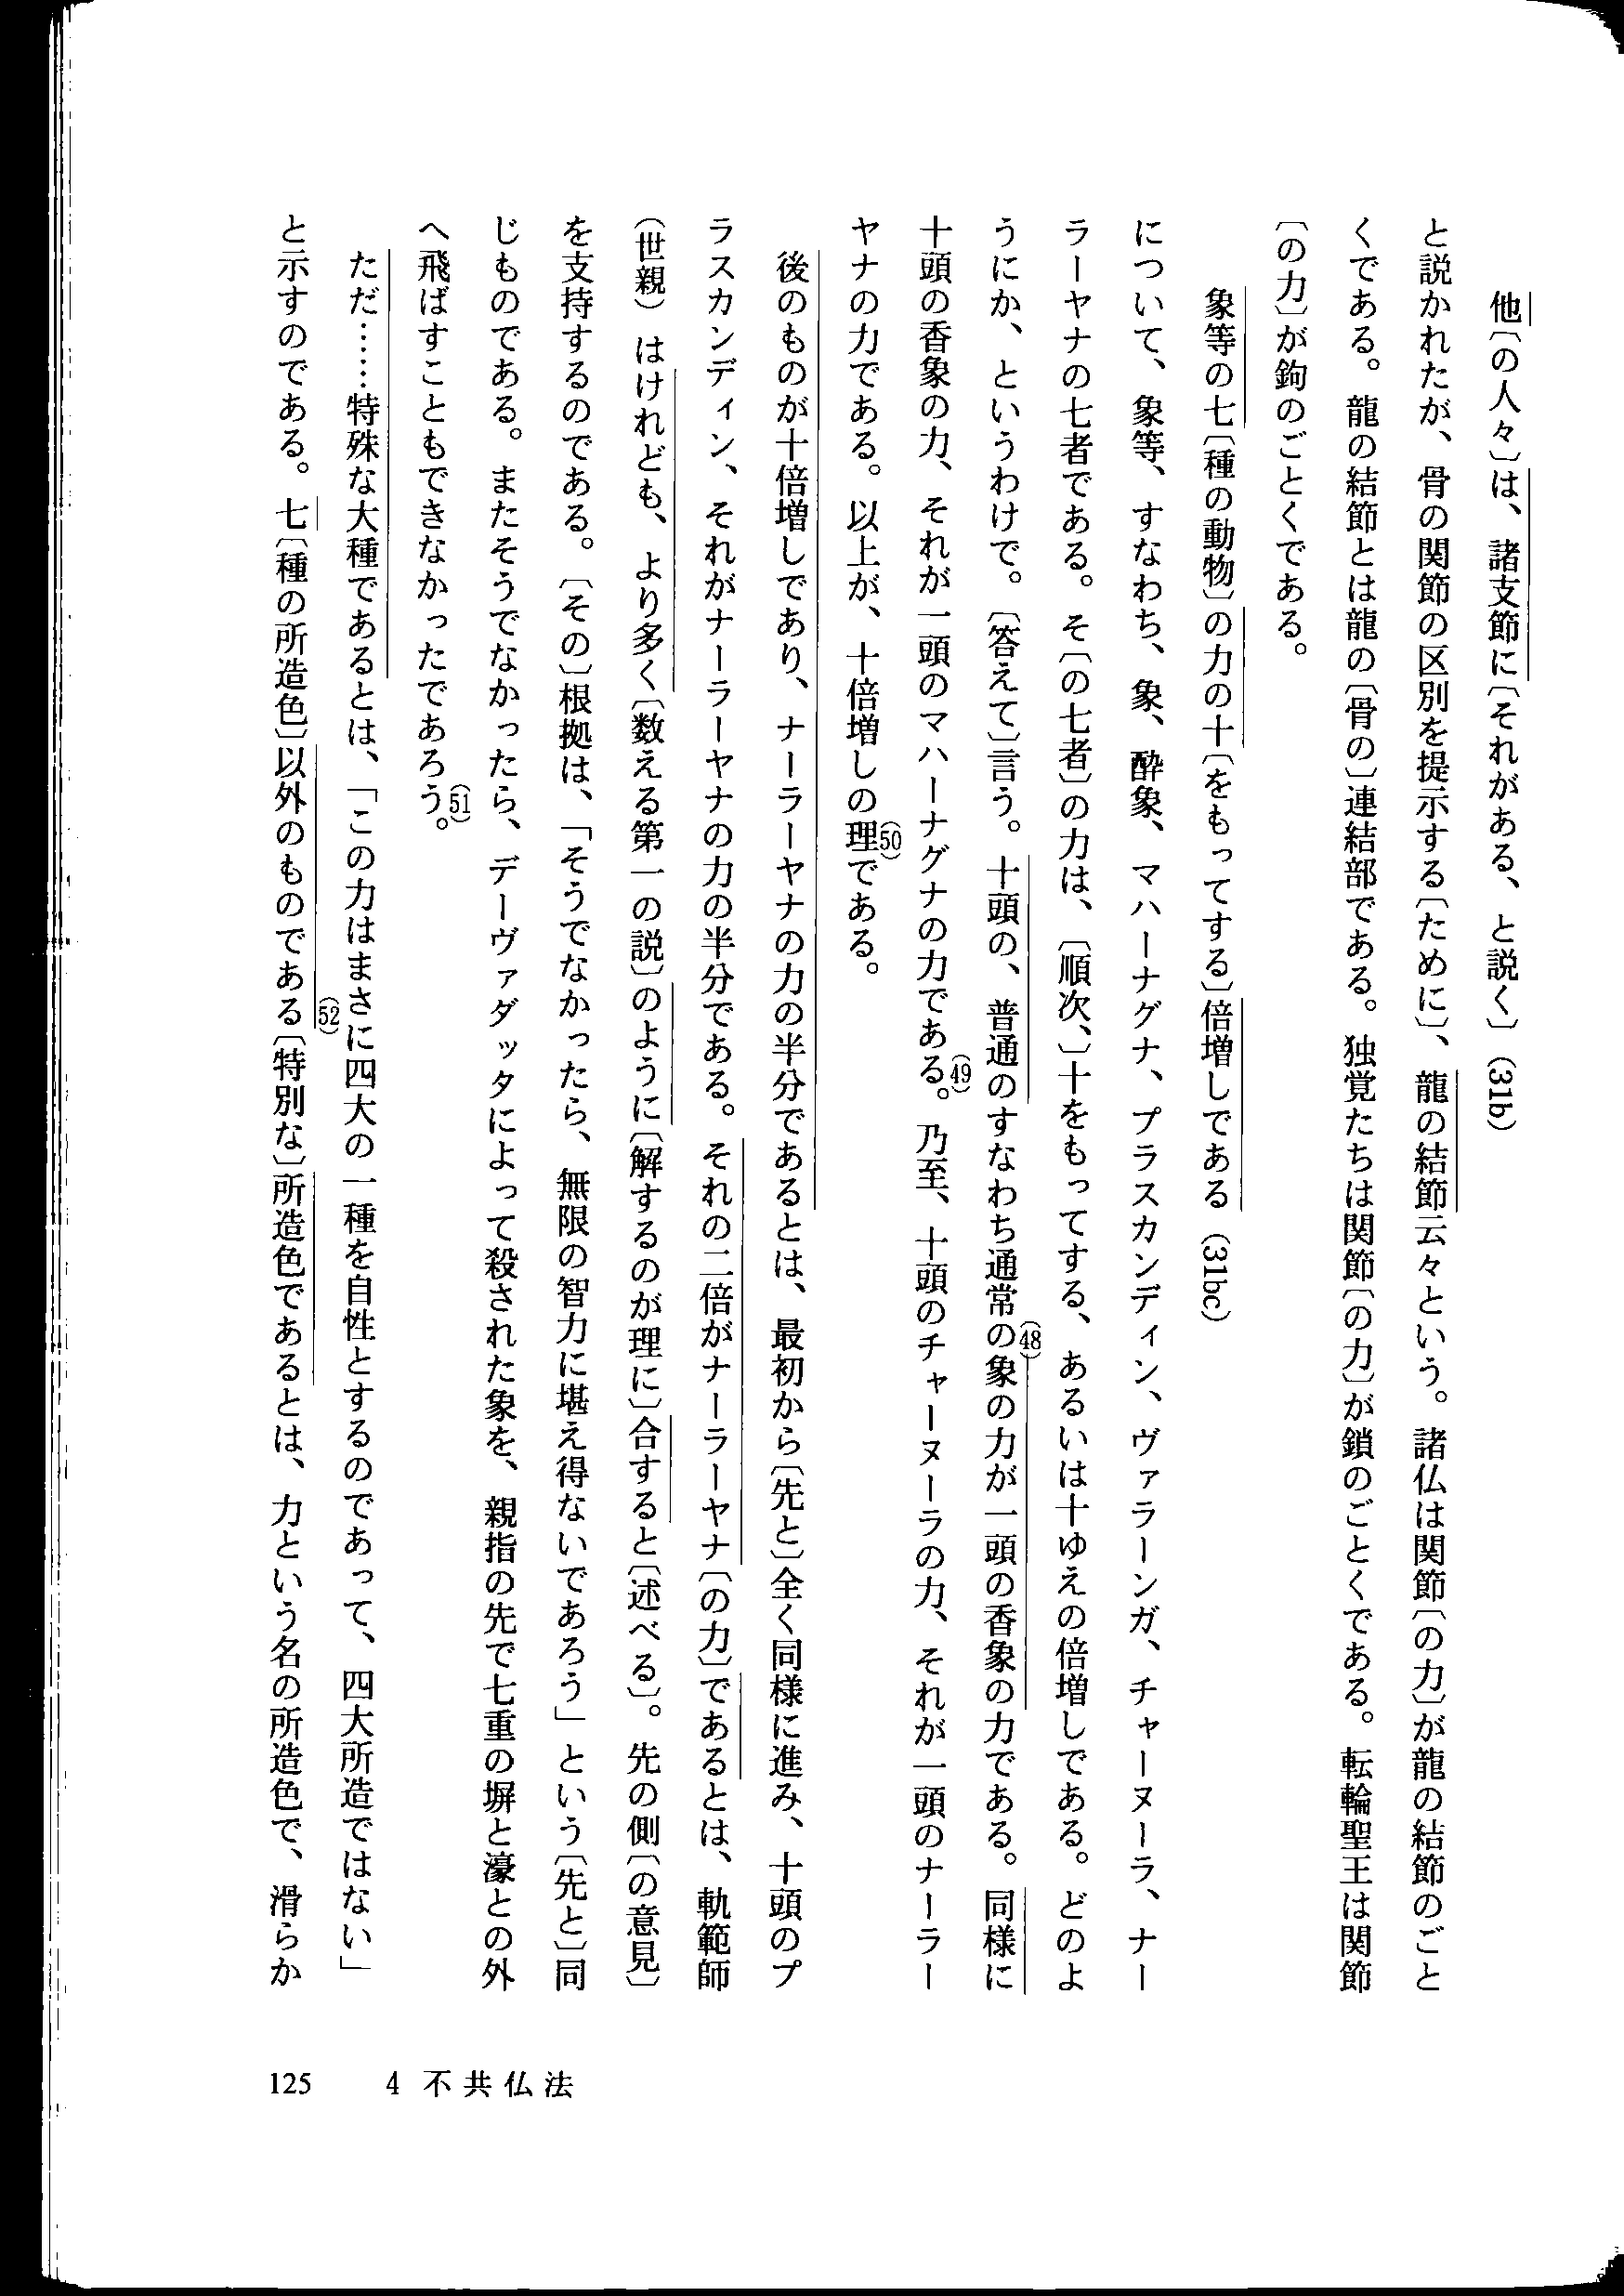 他〔の人々〕は、諸支節に〔それがある、と説く〕(31b)
と説かれたが、骨の関節の区別を提示する〔ために〕、龍の結節云々という。諸仏は関節〔の力〕が龍の結節のごと
くである。龍の結節とは龍の〔骨の〕連結部である。独覚たちは関節〔の力〕が鎖のごとくである。転輪聖王は関節
〔の力〕が鉤のごとくである。
象等の七〔種の動物〕の力の十〔をもってする〕倍増しである(31bc)
について、象等、すなわち、象、酔象、マハーナグナ、プラスカンディン、ヴァラーンガ、チャーヌーラ、ナー
ラーヤナの七者である。そ〔の七者〕の力は、〔順次、〕十をもってする、あるいは十ゆえの倍増しである。どのよ
うにか、というわけで。〔答えて〕言う。十頭の、普通のすなわち通常の(48)象の力が一頭の香象の力である。同様に
十頭の香象の力、それが一頭のマハーナグナの力である。(49)乃至、十頭のチャーヌーラの力、それが一頭のナーラー
ヤナの力である。以上が、十倍増しの理(50)である。
後のものが十倍増しであり、ナーラーヤナの力の半分であるとは、最初から〔先と〕全く同様に進み、十頭のプ
ラスカンディン、それがナーラーヤナの力の半分である。それの二倍がナーラーヤナ〔の力〕であるとは、軌範師
(世親)はけれども、より多く〔数える第一の説〕のように〔解するのが理に〕合すると〔述べる〕。先の側〔の意見〕
を支持するのである。〔その〕根拠は、「そうでなかったら、無限の智力に堪え得ないであろう」という〔先と〕同
じものである。またそうでなかったら、デーヴァダッタによって殺された象を、親指の先で七重の塀と濠との外
へ飛ばすこともできなかったであろう。(51)
ただ……特殊な大種であるとは、「この力はまさに(52)四大の一種を自性とするのであって、四大所造ではない」
と示すのである。七〔種の所造色〕以外のものである〔特別な〕所造色であるとは、力という名の所造色で、滑らか
125 4 不共仏法